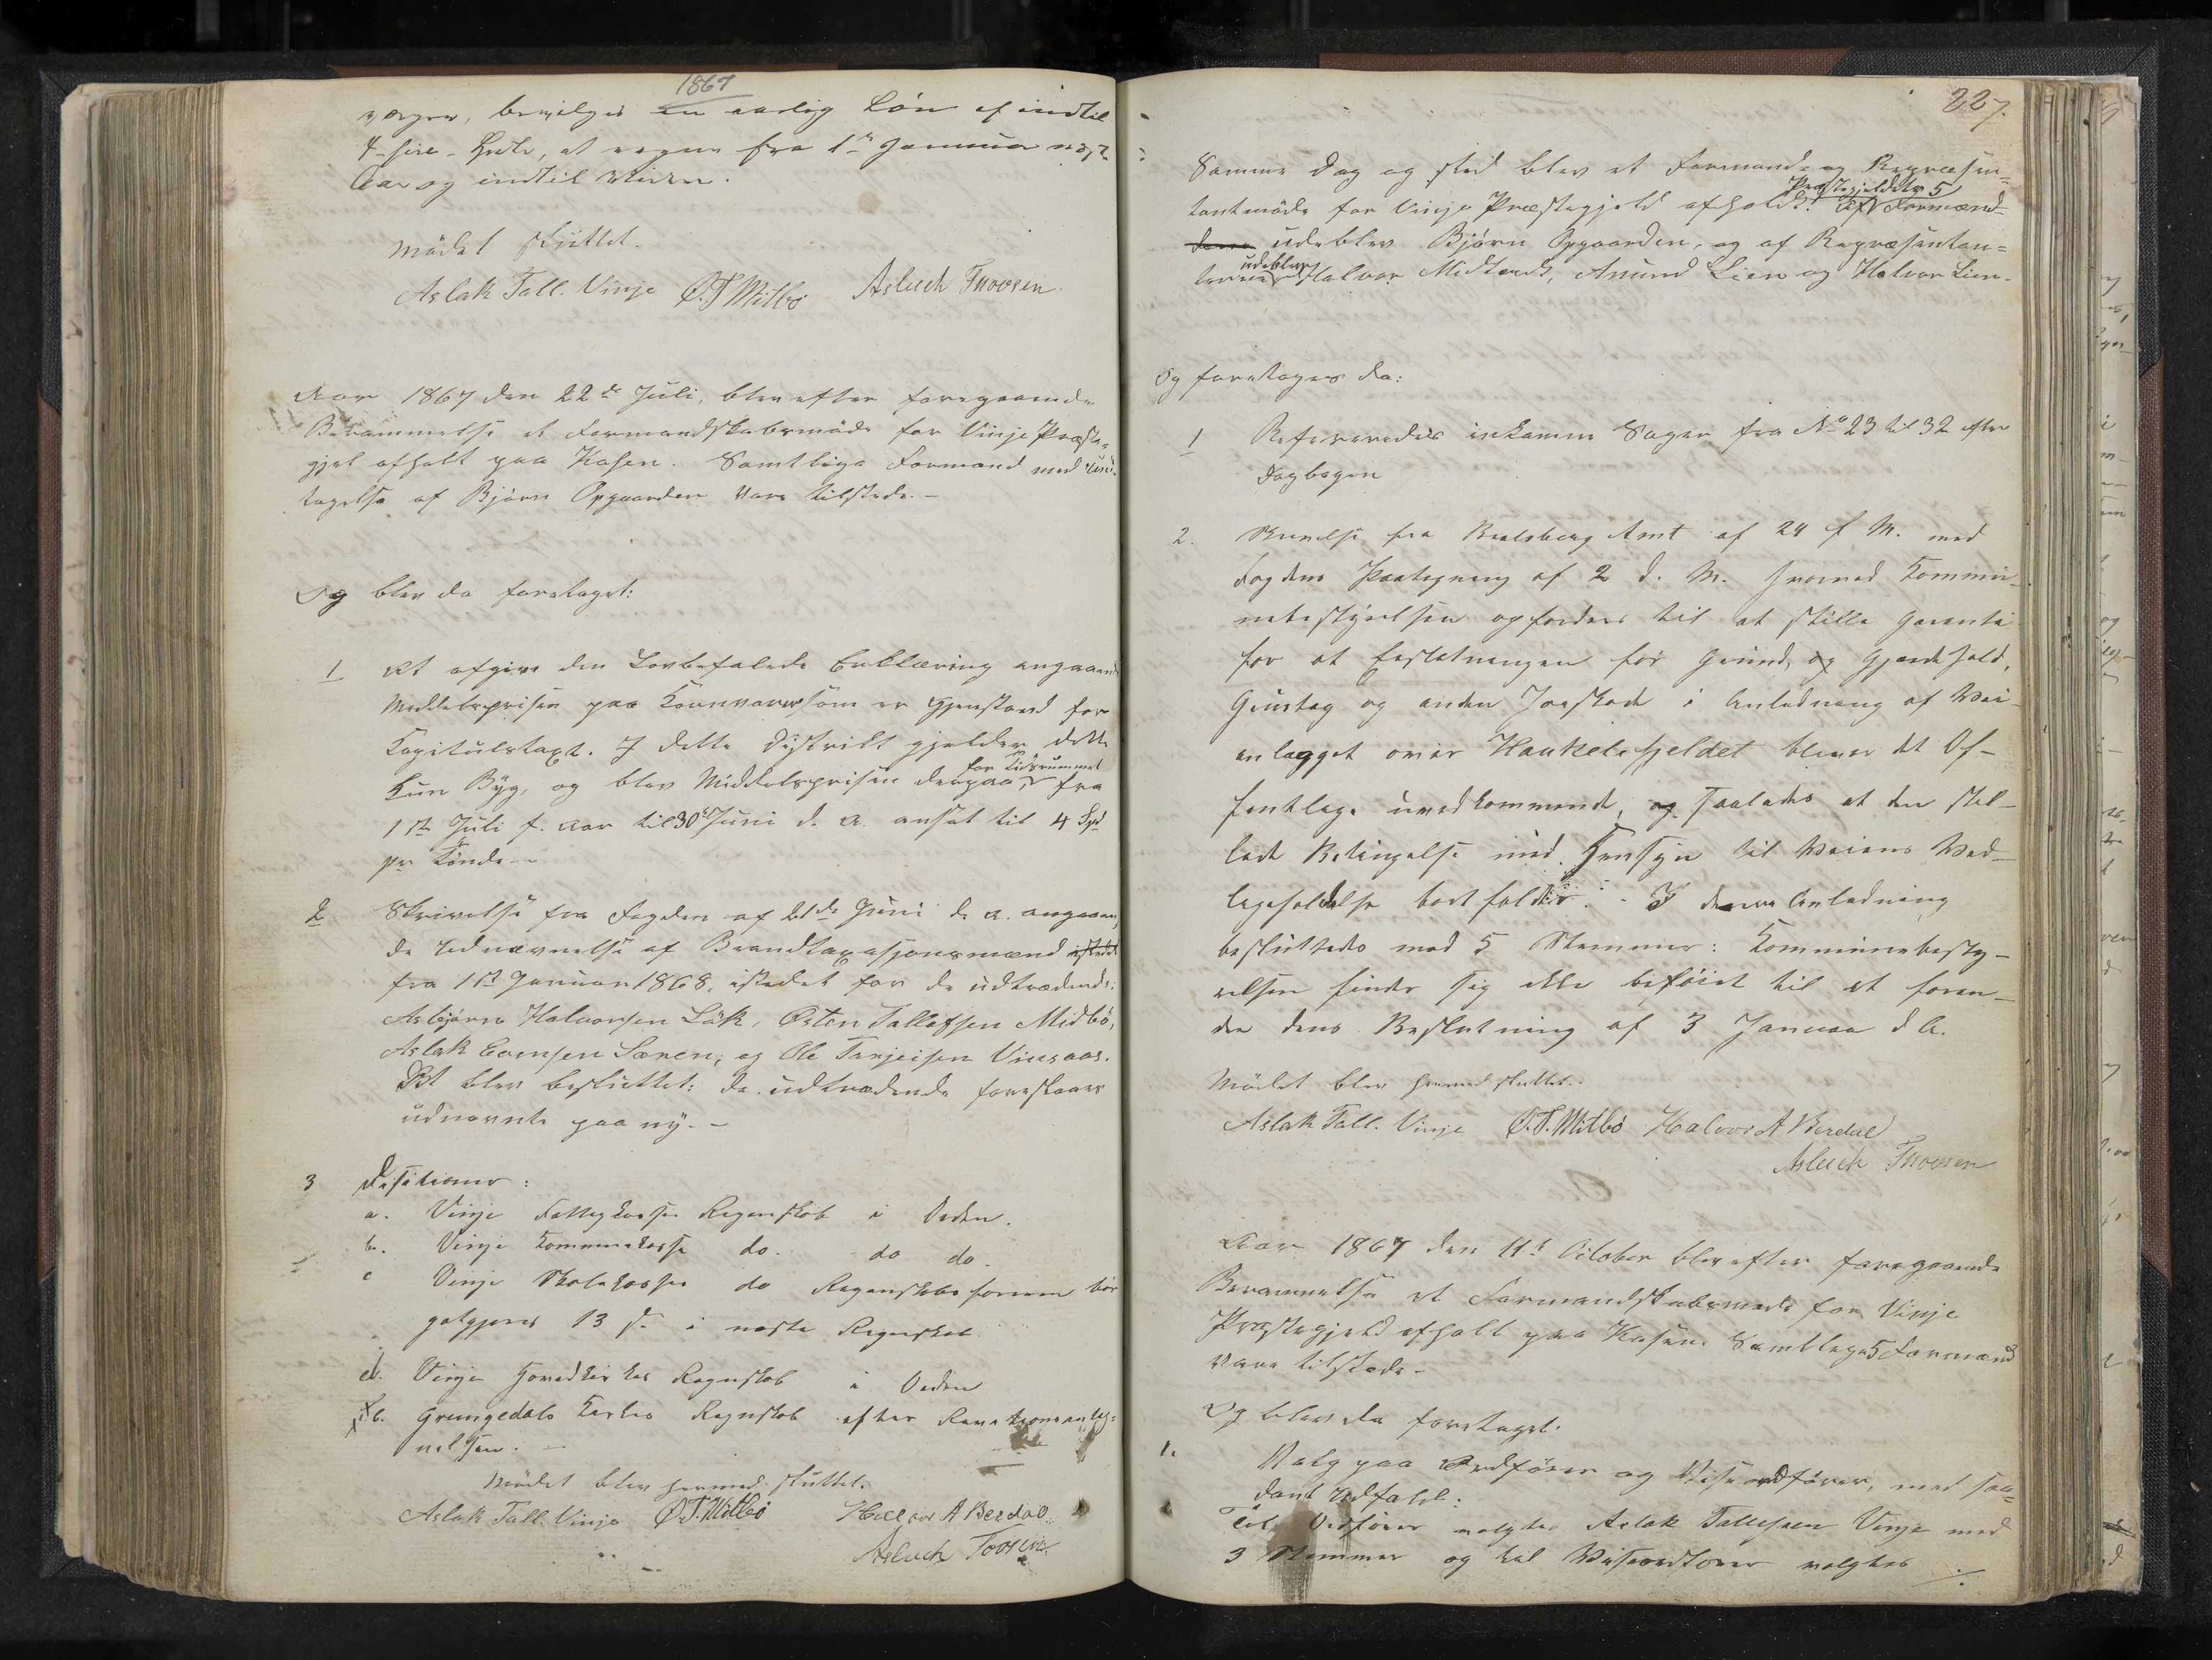 1867
bevilges en aarlig Løn af indtil
4 - fire - at regne fra 1ste Januar næste
Aar og indtil Videre.
Mödet sluttet.
Aslak Tall. Vinje Ø.T. Mitbø Asluch
Aar 1867 den 22de Juli, blev efter foregaaende
Berammelse et Formandskabsmöde for Vinje Præste-
gjel afholt paa Kosen. Samtlige Formænd med und-
tagelse af Björn Opgaarden vare tilstede. -
Og blev da foretaget:
1 At afgive den Lovbefalede Erklæring angaaende
Middelsprisen paa Kornvarer som er Gjenstand for
Kapitulstaxt. I dette Distrikt gjelder dette
for Tidsrummet
kun Byg, og blev Middelsprisen derpaa, fra
1ste Juli f. Aar til 30te Juni d. A. ansat til 4 Spd
pr Tønde -
2 Skrivelse fra Fogden af 21de Juni d. A. angaaen-
de Udnævnelse af Brandtaxasjonsmænd istedet
fra 1ste Januar 1868, istedet for de udtrædende:
Asbjörn Halvorsen Lök, Østen Tallefsen Midbø,
Aslak Evensen Særen, og Ole Tarjeisen Vinsaas.
Det blev besluttet: de udtrædende foreslaaes
udnævnte paa ny. -
3 Desitioner:
a. Vinje Fattigkasses Regnskab i Orden.
b. Vinje Kommunekasse do. do do.
c Vinje Skolekasse do Regnskabsføreren bör
godtgjøres 13 s. i næste Regnskab
d. Vinje Hovedkirkes Regnskab i Orden
e. Grungedals Kirkes Regnskab efter Revisionsanteg-
nelsen. -
Mödet blev hermed sluttet.
Aslak Tall. Vinje Ø.T. Mitbø Halvor A Berdal
Asluch
227.
Samme Dag og sted blev et Formands- og Repræsen-
Præstegjeldets 5
tantmöde for Vinje Præstegjeld afholdt. Af Formænd-
dene udeblev Björn Opgaarden, og af Repræsentan-
udeblev
terne Halvor Midtveit, Amund Lien og Halvor Lien.
Og foretages da:
1 Refereredes inkomne Sager fra No 23 til 32 efter
Dagbogen
2. Skrivelse fra Bratsberg Amt af 24 f. M. med
Fogdens Paategning af 2 d. M. hvorved Kommu-
nebestyrelsen opfordres til at stille Garanti
for at Erstatningen for Grund, og Gjerdehold,
Grustag og anden Jordskade i Anledning af Vei-
anlægget over Haukelifjeldet bliver det Of-
fentlige uvedkommende, og saaledes at den stil-
lede Betingelse med Hensyn til Veiens Ved-
ligeholdelse bortfalder. - I denne Anledning
besluttedes med 5 Stemmer: Kommunebesty-
relsen finder sig ikke beföiet til at foran-
dre dens Beslutning af 3 Januar d A.
Mödet blev hermed sluttet.
Aslak Tall. Vinje Ø.T. Mitbø Halvor A Berdal
Asluch
Aar 1867 den 11te October blev efter foregaaende
Berammelse et Formandskabsmøde for Vinje
Præstegjeld afholt paa Kosen. Samtlige 5 Formænd
vare tilstede -
Og blev da foretaget:
1. Valg paa Ordförer og Viseordförer, med saa-
dant Udfald:
Til Ordförer valgtes Aslak Tallefsen Vinje med
3 Stemmer og til Viseordförer valgtes ./.